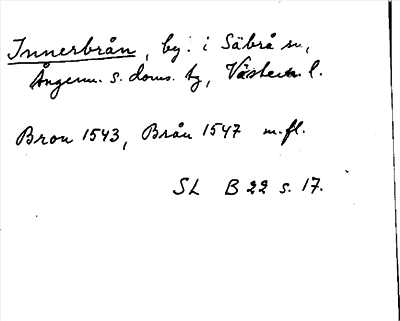 Innerbrån, by: i Säbrå sn,
Ångerm. s. doms. tg, Västern. l.
Bron 1543, Brån 1547 m.fl.
SL B 22 s. 17.